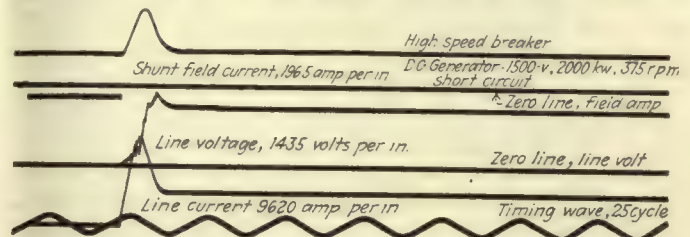 High speed breaker
Shunt field current, 196.5 amp per in
DC Generator-1500-v, 2000 kw, 375 rpm
short circuit
Zero line, field amp
Line voltage, 1435 volts per in.
Zero line, line volt
Line current 9620 amp per in
Timing wave, 25cycle